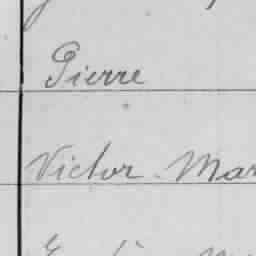 Pierre
Victor Mar